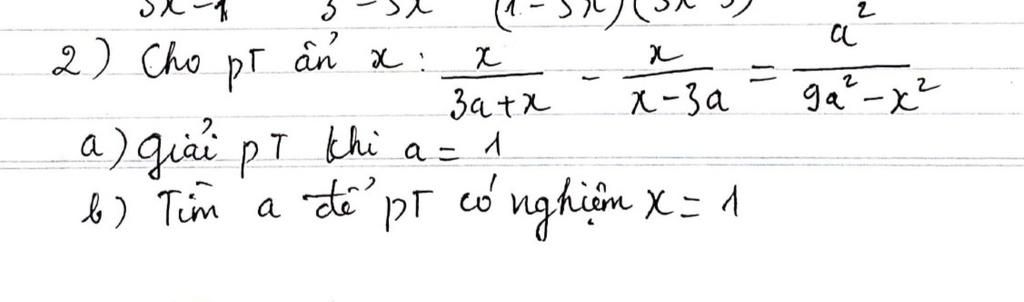 2) Cho pT ẩn x : x/(3a+x) - x/(x-3a) = a²/(9a²-x²)
a) giải pT khi a = 1
b) Tìm a để pT có nghiệm x = 1